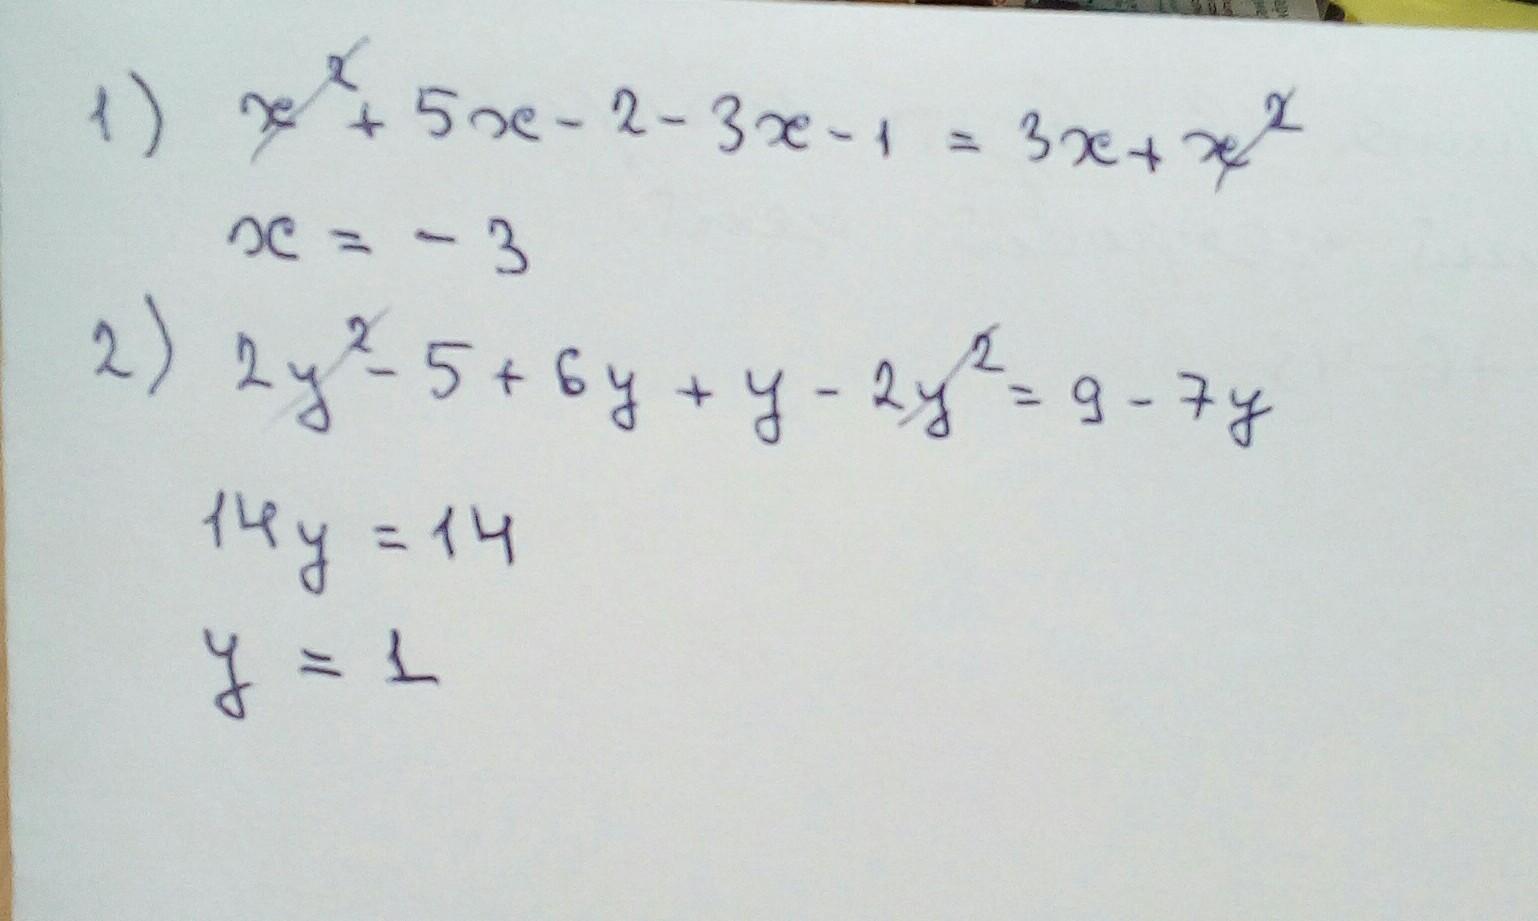 1) x² + 5x - 2 - 3x - 1 = 3x + x²
x = - 3
2) 2y² - 5 + 6y + y - 2y² = 9 - 7y
14y = 14
y = 1